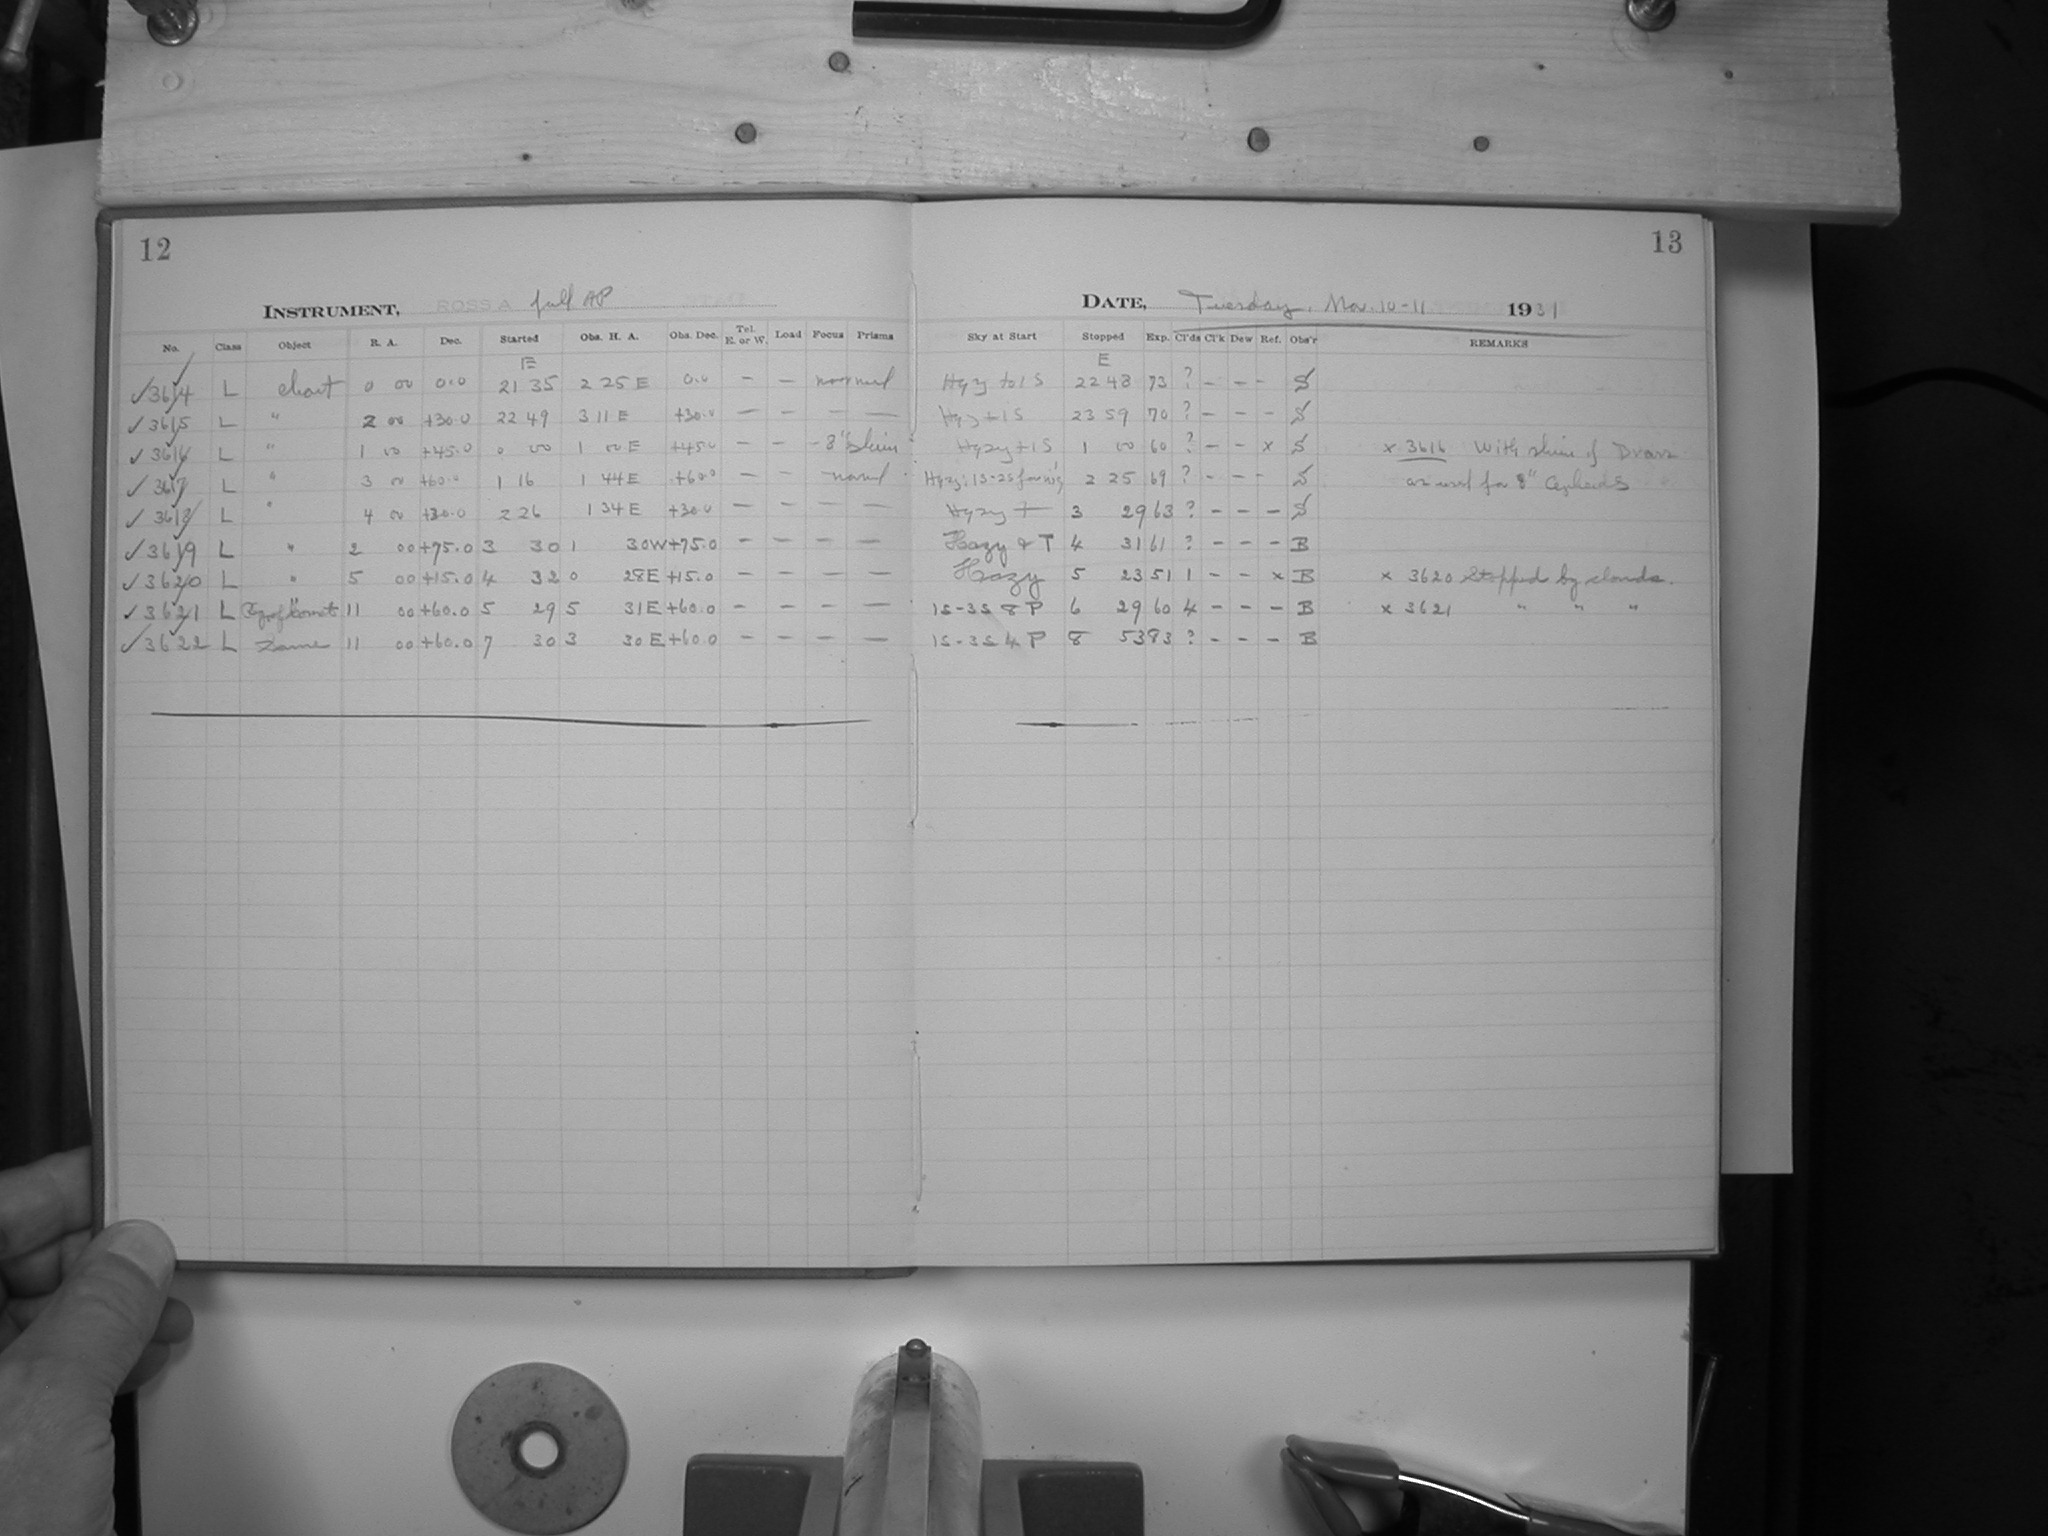 12
INSTRUMENT, ROSS A full AP
No. Class Object R. A. Dec. Started Obs. H. A. Obs. Dec. Tel. E. or W. Load Focus Prisms
E
✓3614 L chart 0 00 0.0 21 35 2 25 E 0.0 — — normal
✓3615 L " 2 00 +30.0 22 49 3 11 E +30.0 — — — —
✓3616 L " 1 00 +45.0 0 00 1 00 E +45.0 — — 8"
✓3617 L " 3 00 +60.0 1 16 1 44 E +60.0 — — normal
✓3618 L " 4 00 +30.0 2 26 1 34 E +30.0 — — — —
✓3619 L " 2 00 +75.0 3 30 1 30 W +75.0 — — — —
✓3620 L " 5 00 +15.0 4 32 0 28 E +15.0 — — — —
✓3621 L 11 00 +60.0 5 29 5 31 E +60.0 — — — —
✓3622 L Same 11 00 +60.0 7 30 3 30 E +60.0 — — — —
13
DATE, Tuesday, Nov. 10-11 1931
Sky at Start Stopped Exp. Cl'ds Cl'k Dew Ref. Obs'r REMARKS
E
Hazy to 1 S 22 48 73 ? — — — S
Hazy + 1 S 23 59 70 ? — — — S
Hazy + 1 S 1 00 60 ? — — x S x 3616 With of
Hazy; 1S-2S 2 25 69 ? — — — S as used for 8" Cepheids
Hazy + 3 29 63 ? — — — S
Hazy & T 4 31 61 ? — — — B
Hazy 5 23 51 1 — — x B x 3620 Stopped by clouds.
1S-3S 8 P 6 29 60 4 — — — B x 3621 " " "
1S-3S 4 P 8 53 83 ? — — — B